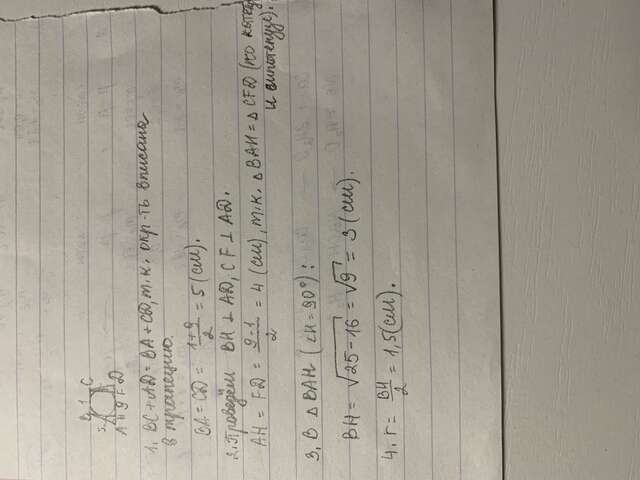 B 1 C
5
A H 9 F D
1. BC + AD = BA + CD, т.к. окр-ть вписана
в трапецию.
BA = CD = 1+9/2 = 5 (см).
2. Проведём BH ⊥ AD, CF ⊥ AD.
AH = FD = 9-1/2 = 4 (см), т.к. △ BAH = △ CFD (по катету
и гипотенузе).
3. В △ BAH (∠H = 90°):
BH = √25-16 = √9 = 3 (см).
4. r = BH/2 = 1,5 (см).